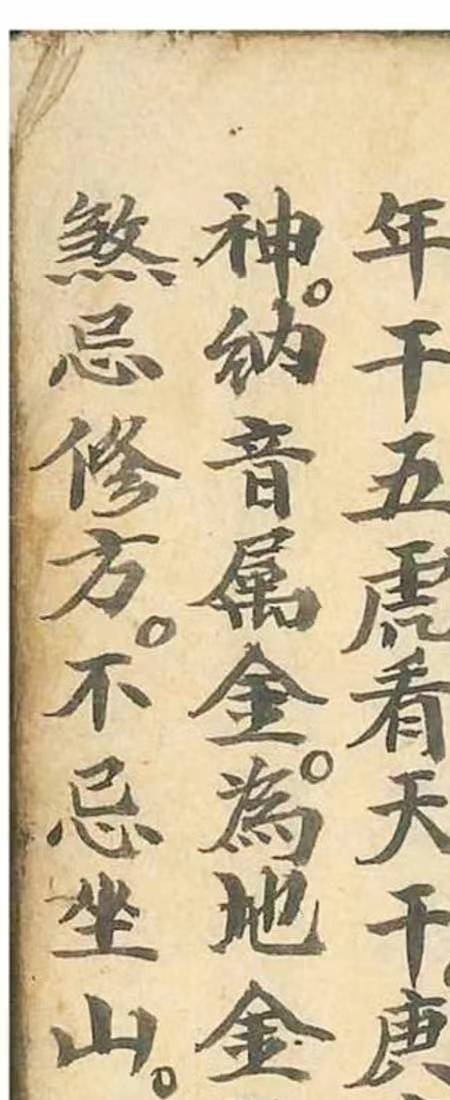 年干五虎看天干。庚
神。納音属金。為地金
煞忌修方。不忌坐山。